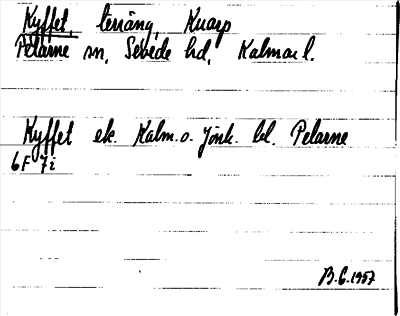 Kyffet, terräng, Knarp
Pelarne sn, Sevede hd, Kalmar l.
Kyffet ek. Kalm. o. Jönk. bl. Pelarne
6F 7i
B.G. 1957